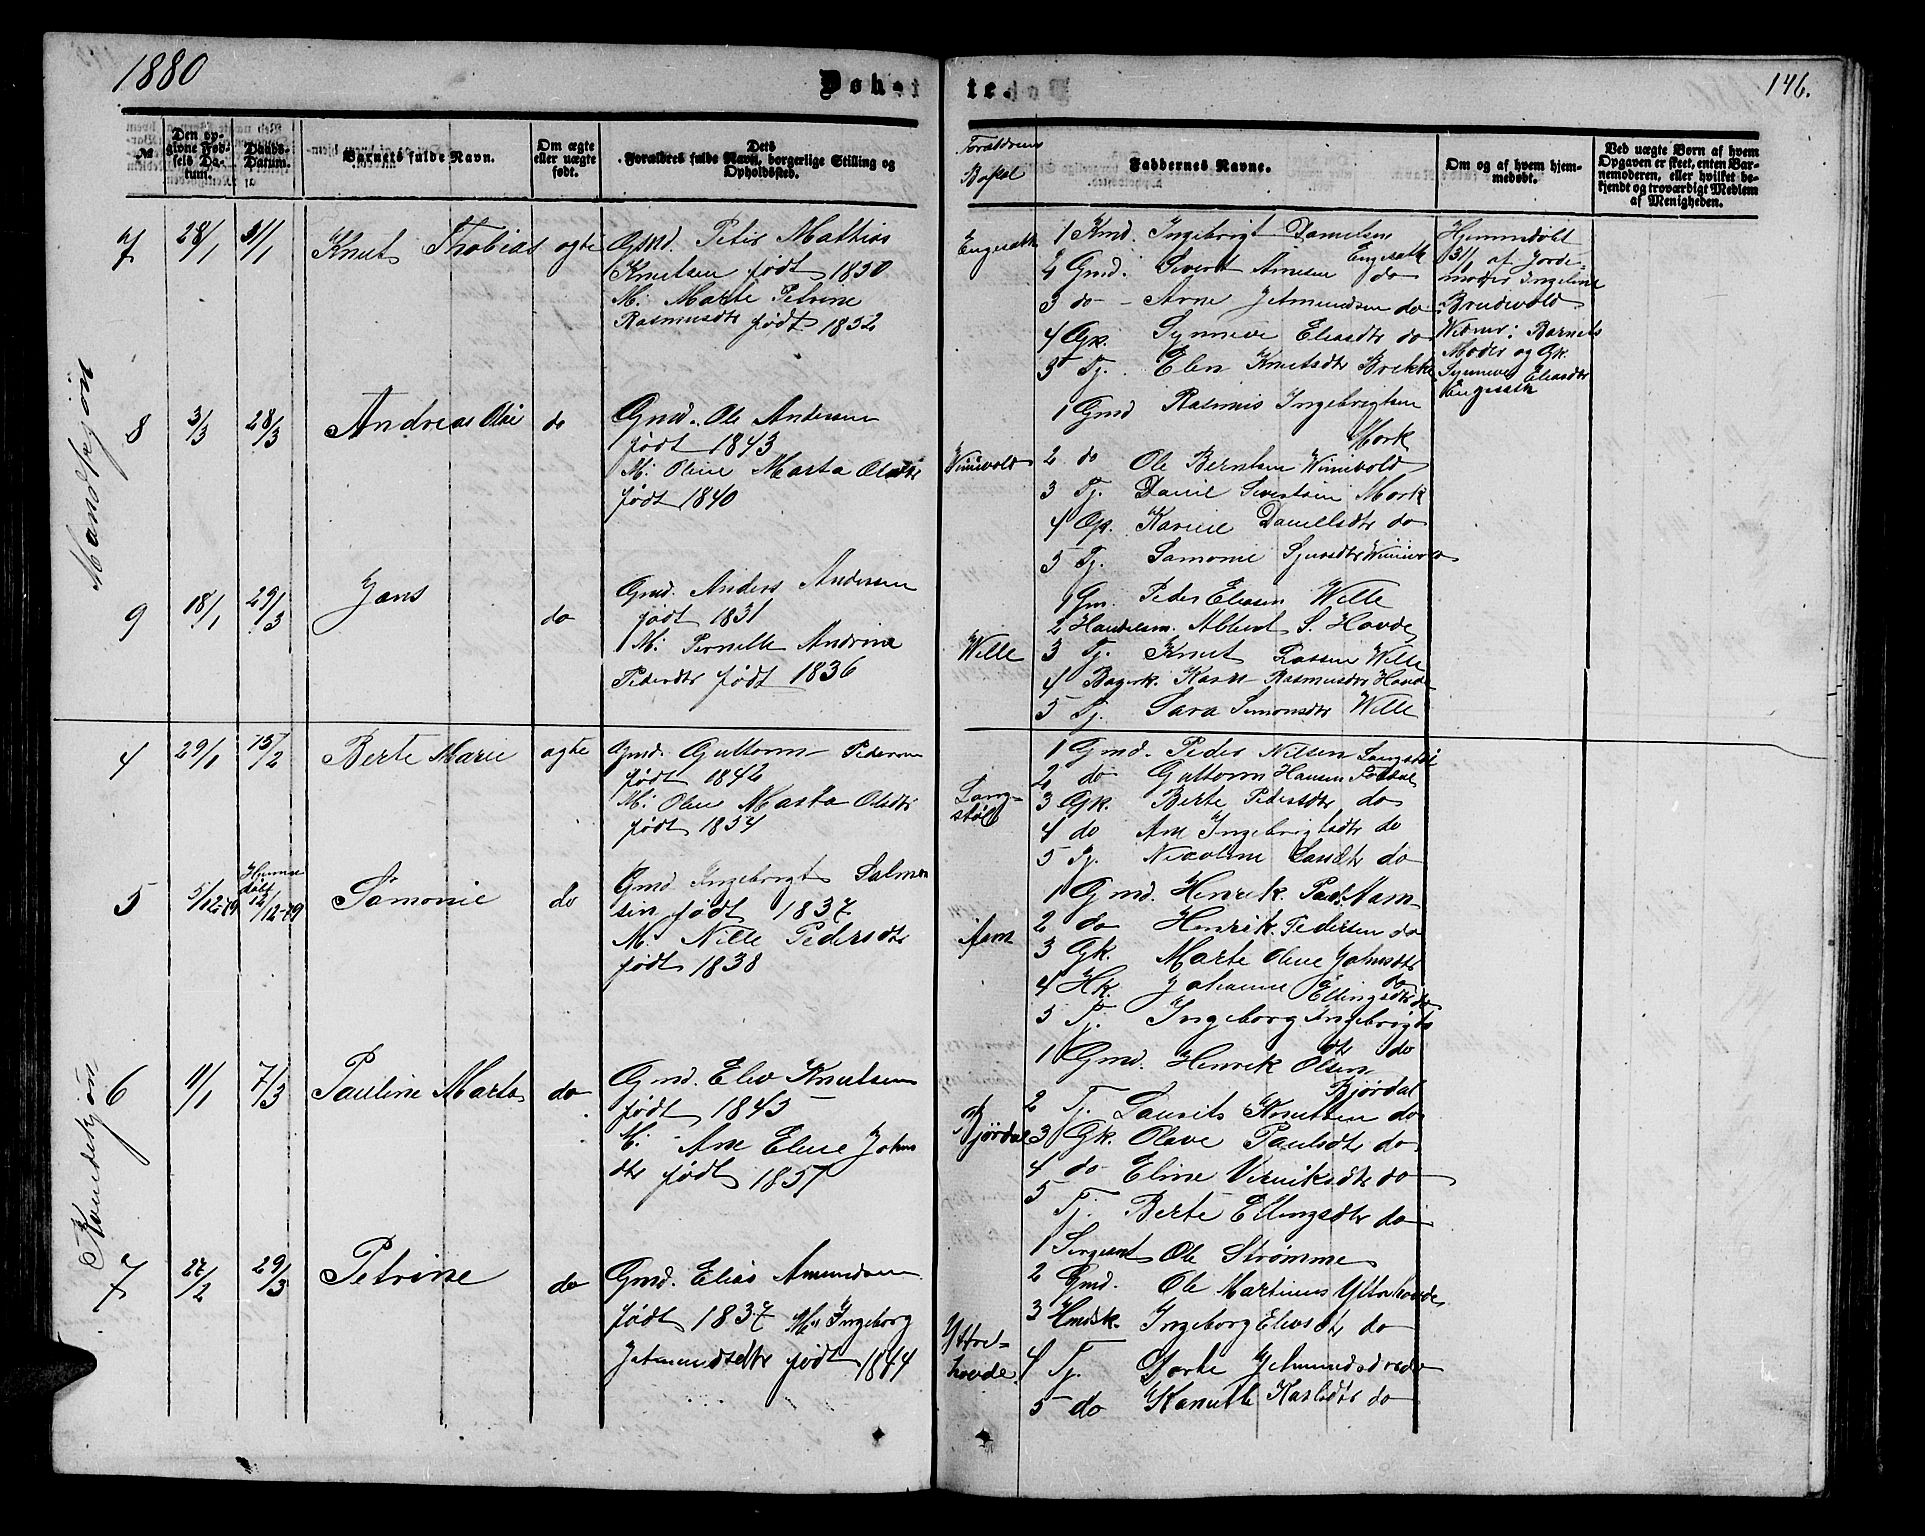 1880
Døbte.
146.
№
Den opgivne Fødsels Datum.
Daabs-Datum.
Barnets fulde Navn.
Om ægte eller uægte født.
Dets Forældres fulde Navn, borgerlige Stilling og Opholdssted.
Forældrenes Bopel
Faddernes Navne.
Om og af hvem hjemmedøbt.
Ved uægte Børn af hvem Opgaven er skeet, enten Barnemoderen, eller hvilket bekjendt og troværdigt Medlem af Menigheden.
Mandkjøn
7 28/1 31/1 Knut Thobias ægte
Peter Mathias
Knutsen født 1850
M: Marte Petrine
Rasmusdtr født 1852
Engeseth
1 Kmd. Ingebrigt Danielsen
Engeseth
2 Gmd. Sivert Arnesen do
3 do - Arne Jetmundsen do
4 Gk. Synneve Eliasdtr do
5 Tj. Elen Knutsdtr Brekke
Hjemmedøbt
31/1 af Jorde-
moder Ingeline
Brudevold
Vidner: Barnets
Moder og Gk.
Synneve Eliasdtr
Engeseth
8 3/3 28/3 Andreas Olai do
Gmd. Ole Andersen
født 1843
M: Oline Marta Olsdtr
født 1840
Winnevold
1 Gmd Rasmus Ingebrigtsen
Mork
2 do Ole Berntsen Winnevold
3 Tj. Daniel Sivertsen Mork
4 Gk. Karine Danielsdtr do
5 Tj. Samonie Sjursdtr Winnevold
9 18/1 29/3 Jens do
Gmd. Anders Andersen
født 1831
M: Pernille Andrine
Pedersdtr født 1836
Welle
1 Gm. Peder Eliasen Welle
2 Handelsm. Albert S. Hovde
3 Tj. Knut Lassen Welle
4 Karn Rasmusdtr Hovde
5 Tj. Sara Simonsdtr Welle
Kvindekjøn
4 29/1 15/2 Berte Marie ægte
Gmd. Guttorm Pedersen
født 1842
M: Oline Marta Olsdtr
født 1854
Lang-
støl
1 Gmd. Peder Nilsen Langstøl
2 do Guttorm Hansen
3 Gk. Berte Pedersdtr do
4 do Ane Ingebrigtsdtr do
5 Tj. Nicoline Larsdtr do
5 5/12-79 Hjemme
døbt
12/12-79 Samonie do
Gmd Ingebrigt Salmon
sen født 1837
M. Nille Pedersdtr
født 1838
Aam
1 Gmd. Henrik Aam
2 do Henrik Pedersen do
3 Gk. Marte Oline Johnsdtr
do
4 Hk. Johanne Ellingsdtr do
5 Tj. Ingeborg Ingebrigts
dtr do
6 11/1 7/3 Pauline Marta do
Gmd. Eliv Knutsen
født 1843
M: Ane Eline Johns
dtr født 1857
Bjørdal
1 Gmd. Henrik Olsen
Bjørdal
2 Tj. Laurits Knutsen do
3 Gk. Olave Paulsdtr do
4 do Eline Henriksdtr do
5 Tj. Berte Ellingsdtr do
7 27/2 29/3 Petrine do
Gmd. Elias Amundsen
født 1837 M: Ingeborg
Jetmundsdtr født 1844
Yttre-
hovde.
1 Sergeant Ole Strømme
2 Gmd. Ole Martinus Yttrehovde
3 Ingeborg Eliasdtr do
4 Tj. Dorte Jetmundsdtr do
5 do Kanutte Karlsdtr do